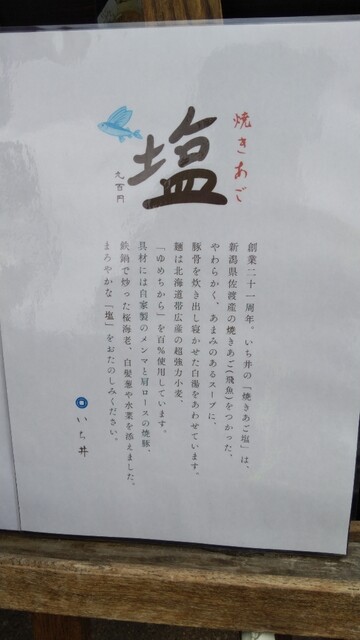 焼きあご
塩
九百円
創業二十一周年。いち井の「焼きあご塩」は、
新潟県佐渡産の焼きあご(飛魚)をつかった、
やわらかく、あまみのあるスープに、
豚骨を炊き出し寝かせた白湯をあわせています。
麺は北海道帯広産の超強力小麦、
「ゆめちから」を百%使用しています。
具材には自家製のメンマと肩ロースの焼豚、
鉄鍋で炒った桜海老、白髪葱や水菜を添えました。
まろやかな「塩」をおたのしみください。
いち井